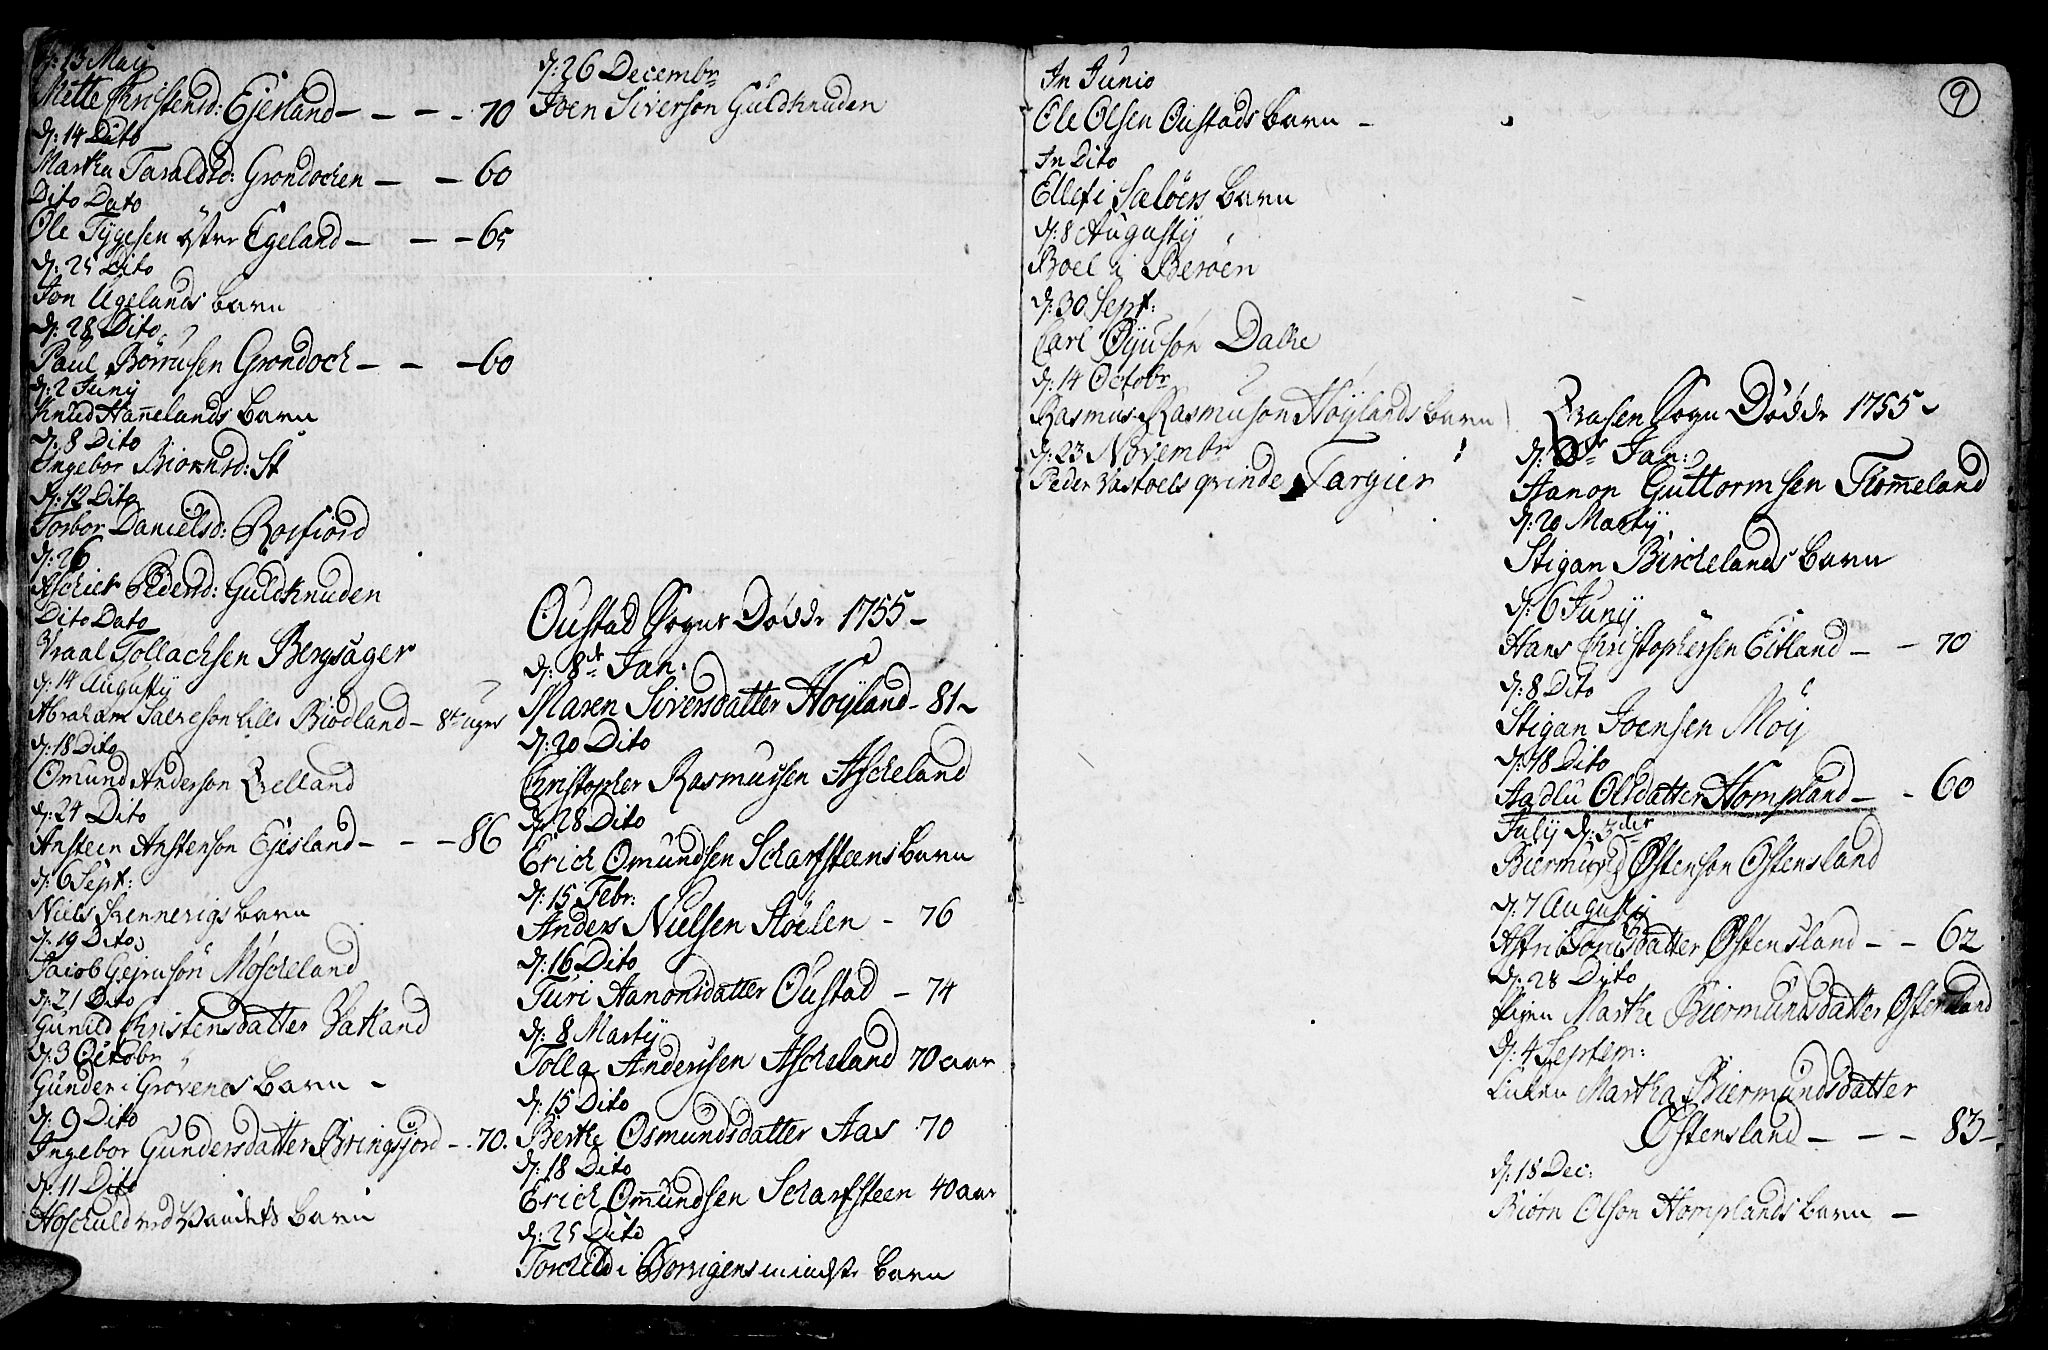 d: 13 May
Mette Christensd: Ejersland - - - - 70
d: 14 Dito
Martha Taraldsd: Grondochen - - 60
Dito Dato
Ole Tÿgesen østre Egeland - - - 65
d: 25 Dito
Jon Ugelands barn
d: 28 Dito
Paul Børrusen Grondoch - - - 60
d: 2 Junÿ
Knud Hañelands barn
d: 8 Dito
Ingebor Biornsd: St
d: 12 Dito
Torbor Danielsd: Rosfiord
d: 26
Aschier Pedersd: Guldknuden
Dito Dato
Vraal Tollachsen Bergsager
d: 14 Augustÿ
Abraham Salveson Lille Biodland - 8t uger
d: 18 Dito
Omund Anderson Qvelland
d: 24 Dito
Ansteen Anstenson Ejesland - - - 86
d: 6 Sept:
Niels Kennerigs barn
d: 19 Dito
Jacob Gejruson Moscheland
d: 21 Dito
Gunild Christensdatter Vatland
d: 3 Octobr
Gunder i Grovenes barn -
d: 9 Dito
Ingebor Gundersdatter Qvringsfjord - 70.
d: 11 Dito
Hoschuld ved Vandets barn
d: 26 Decembr
Joen Siverson Guldknuden
Oustad Sogns Dødde 1755 -
d: 8de Jan:
Maren Siversdatter Hoÿland - 81 -
d: 20 Dito
Christopher Rasmussen Ascheland
d: 28 Dito
Erich Omundsen Scharfsteens barn
d: 15 Febr:
Anders Nielsen Stöelen - 76
d: 16 Dito
Turi Aanonsdatter Oustad - 74
d: 8 Martÿ
Tolla Andersen Ascheland 70 aar
d: 15 Dito
Berthe Osmundsdatter Aas 70
d: 18 Dito
Erich Omundsen Scharfsteen 40 aar
d: 25 Dito
Torchild i Qvorrigens mindste barn
9
In Junio
Ole Olsen Oustads barn -
In Dito
Ellef i Sæløers barn
d: 8 Augustÿ
Boel i Berøen
d: 30 Sept:
Carl Øÿuson Dalke
d: 14 Octobr
Rasmus Rasmuson Hoÿlands barn
d: 23 Novembr
Peder Vastoels qvinde Targier
Qvasen Sogn Dødde 1755 -
Jan:
Aanon Guttormsen Flomeland
d: 20 Martÿ
Stigan Birchelands barn
d: 6 Junÿ
Hans Christophersen Eitland - - 70
d: 8 Dito
Stigan Joensen Moÿ
d: 18 Dito
Aadlu Olsdatter Hompland - - 60
Julÿ d: 3die
Biermund Østenson Ostensland
d: 7 Augustÿ
Astri Tonisdatter Østensland - - 62
d: 28 Dito
Pigen Marthe Biermundsdatter Østensland
d: 4 Septem:
Enken Martha Biermundsdatter
Østensland - - - 83 -
d: 18 Dec:
Biorn Olson Homplands barn -